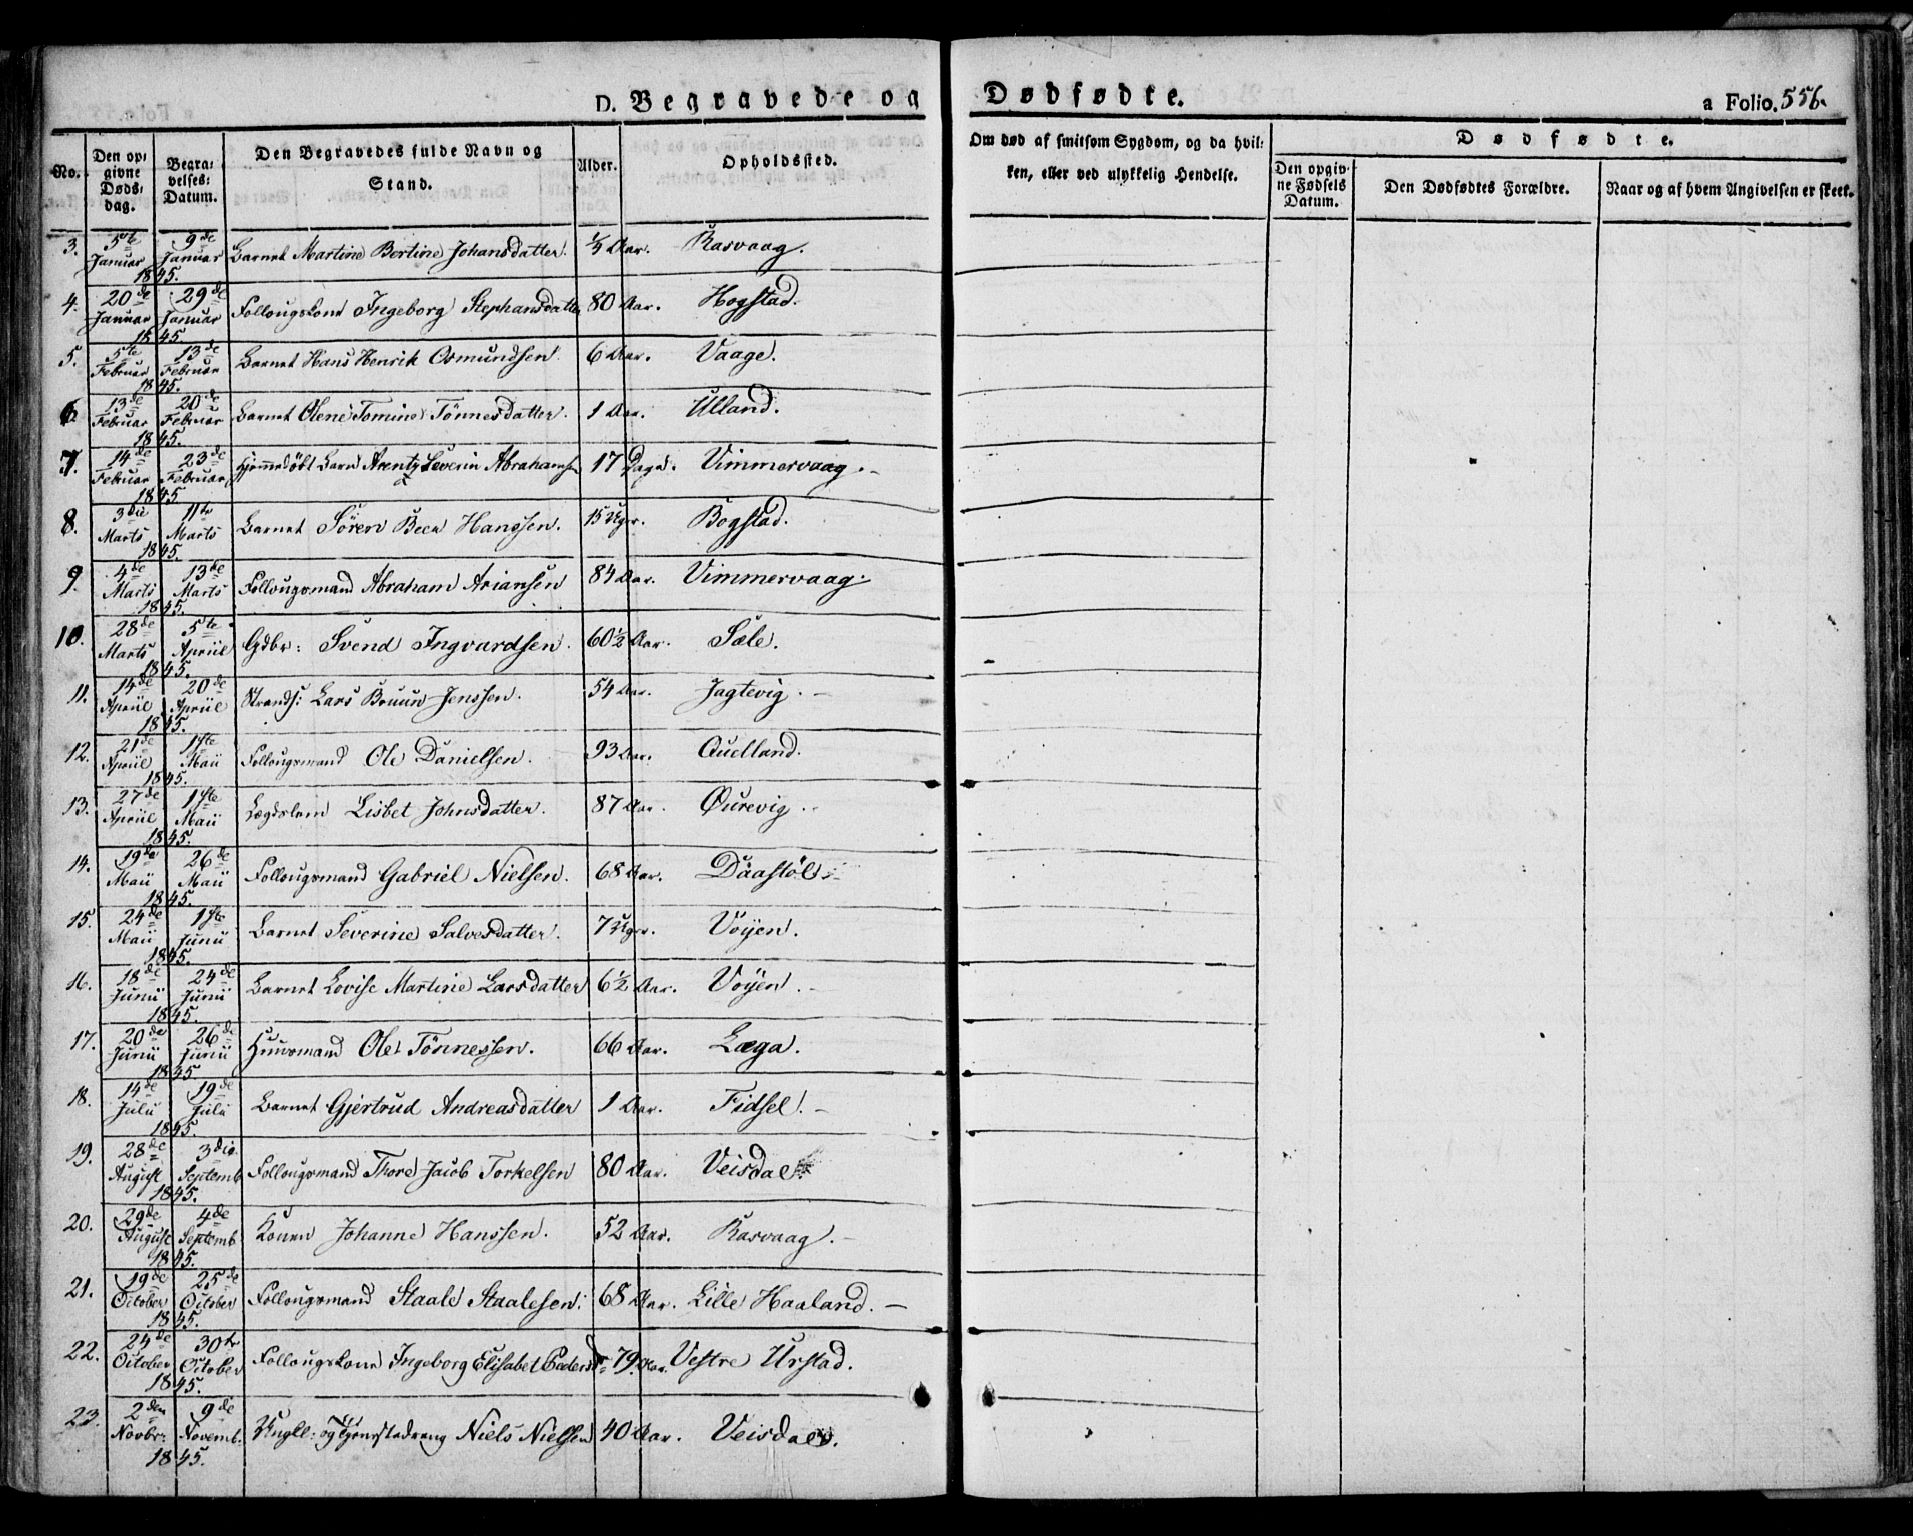 D. Begravede og Dødfødte.
a Folio. 556.
No.
Den op=
givne
Døds=
dag.
Begra=
velses=
Datum.
Den Begravedes fulde Navn og
Stand.
Alder.
Opholdssted.
Om død af smitsom Sygdom, og da hvil=
ken, eller ved ulykkelig Hendelse.
Dødfødte.
Den opgiv=
ne Fødsels
Datum.
Den Dødfødtes Forældre.
Naar og af hvem Angivelsen er skeet.
3. 5te Januar 9de Januar 1845. Barnet Martine Bertine Johansdatter. Aar. Rasvaag.
4. 20de Januar 29de Januar 1845. Follougskone Ingeborg Stephansdatter 80 Aar. Hogstad.
5. 5te Februar 13de Februar 1845. Barnet Hans Henrik Osmundsen 6 Aar. Vaage.
6. 13de Februar 20de Februar 1845. Barnet Olene Tomine Tönnesdatter. 1 Aar. Ulland.
7. 14de Februar 23de Februar 1845 Hjemmedöbt Barn Arentz Severin Abrahamsen 17 Dage. Vimmervaag.
8. 3die Marts 11te Marts 1845. Barnet Sören Beer Hanssen. 15 Uger. Bogstad.
9. 4de Marts 13de Marts 1845. Follougsmand Abraham Ariansen 84 Aar. Vimmervaag.
10. 28de Marts 5te Apriil 1845. Gdbr: Svend Ingvardsen. 60½ Aar. Sæle.
11. 14de Apriil 20de Apriil 1845. Strands: Lars Bruun Jenssen. 54 Aar. Jagtevig.
12. 21de Apriil 1ste Maii 1845. Follougsmand Ole Danielsen. 93 Aar. Quelland.
13. 27de Apriil 1ste Maii 1845. Lægdslem Lisbet Johnsdatter. 87 Aar. Øurevig.
14. 19de Maii 26de Maii 1845. Follougsmand Gabriel Nielsen. 68 Aar. Daastöl.
15. 24de Maii 1ste Junii 1845. Barnet Severine Salvesdatter. 7 Uger. Vöyen.
16. 18de Junii 24de Junii 1845. Barnet Lovise Martine Larsdatter 6½ Aar. Vöyen.
17. 20de Junii 26de Junii 1845 Huusmand Ole Tönnessen. 66 Aar. Læga.
18. 14de Julii 19de Julii 1845. Barnet Gjertrud Andreasdatter 1 Aar. Fidsel.
19. 28de August 3die Septemb 1845. Follougsmand Thore Jacob Torkelsen 80 Aar. Veisdal
20. 29de August 4de Septemb 1845. Konen Johanne Hanssen. 52 Aar. Rasvaag.
21. 19de October 25de October 1845. Follougsmand Staale Staalesen. 68 Aar. Lille Haaland.
22. 24de October 30te October 1845. Follougskone Ingeborg Elisabet Peders 79 Aar. Vestre Urstad.
23. 2den Novbr: 9de Novemb. 1845. Ungk: og Tjenestedreng Niels Nielsen 40 Aar. Veisdal.